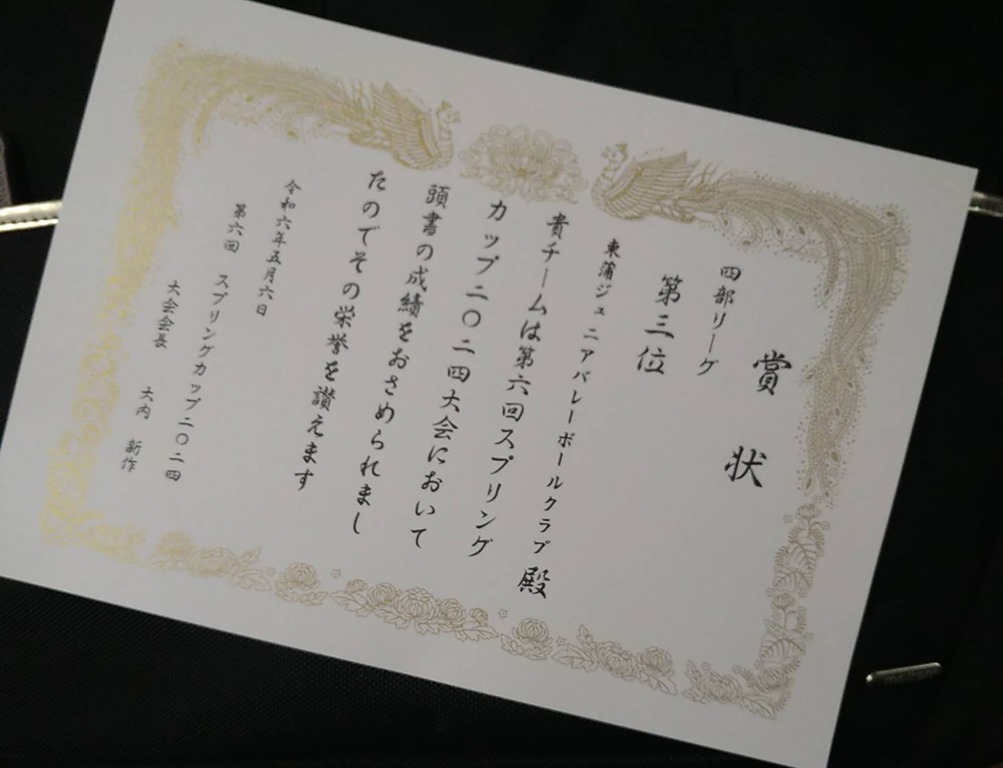 賞状
四部リーグ
第三位
東蒲ジュニアバレーボールクラブ 殿
貴チームは第六回スプリング
カップ二〇二四大会において
頭書の成績をおさめられまし
たのでその栄誉を讃えます
令和六年五月六日
第六回 スプリングカップ二〇二四
大会会長 大内 新作